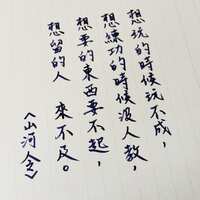 想玩的時候玩不成，
想練功的時候沒人教，
想要的東西要不起，
想留的人 來不及。
《山河令》